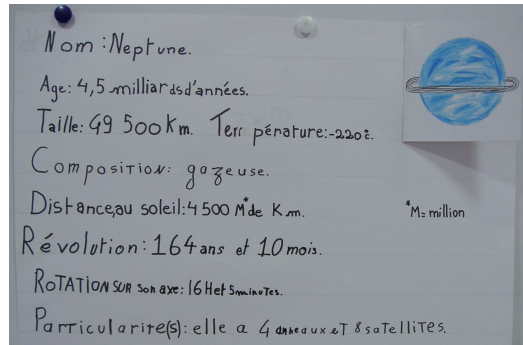 Nom : Neptune.
Age: 4,5 milliards d'années.
Taille: 49 500 Km. Terr pérature: -220 c.
Composition: gazeuse.
Distance, au soleil: 4 500 M* de Km.
*M= million
Révolution: 164 ans et 10 mois.
RoTATION SUR son axe: 16 H et 5 minutes.
Particularité(s): elle a 4 anneaux eT 8 saTelliTes.